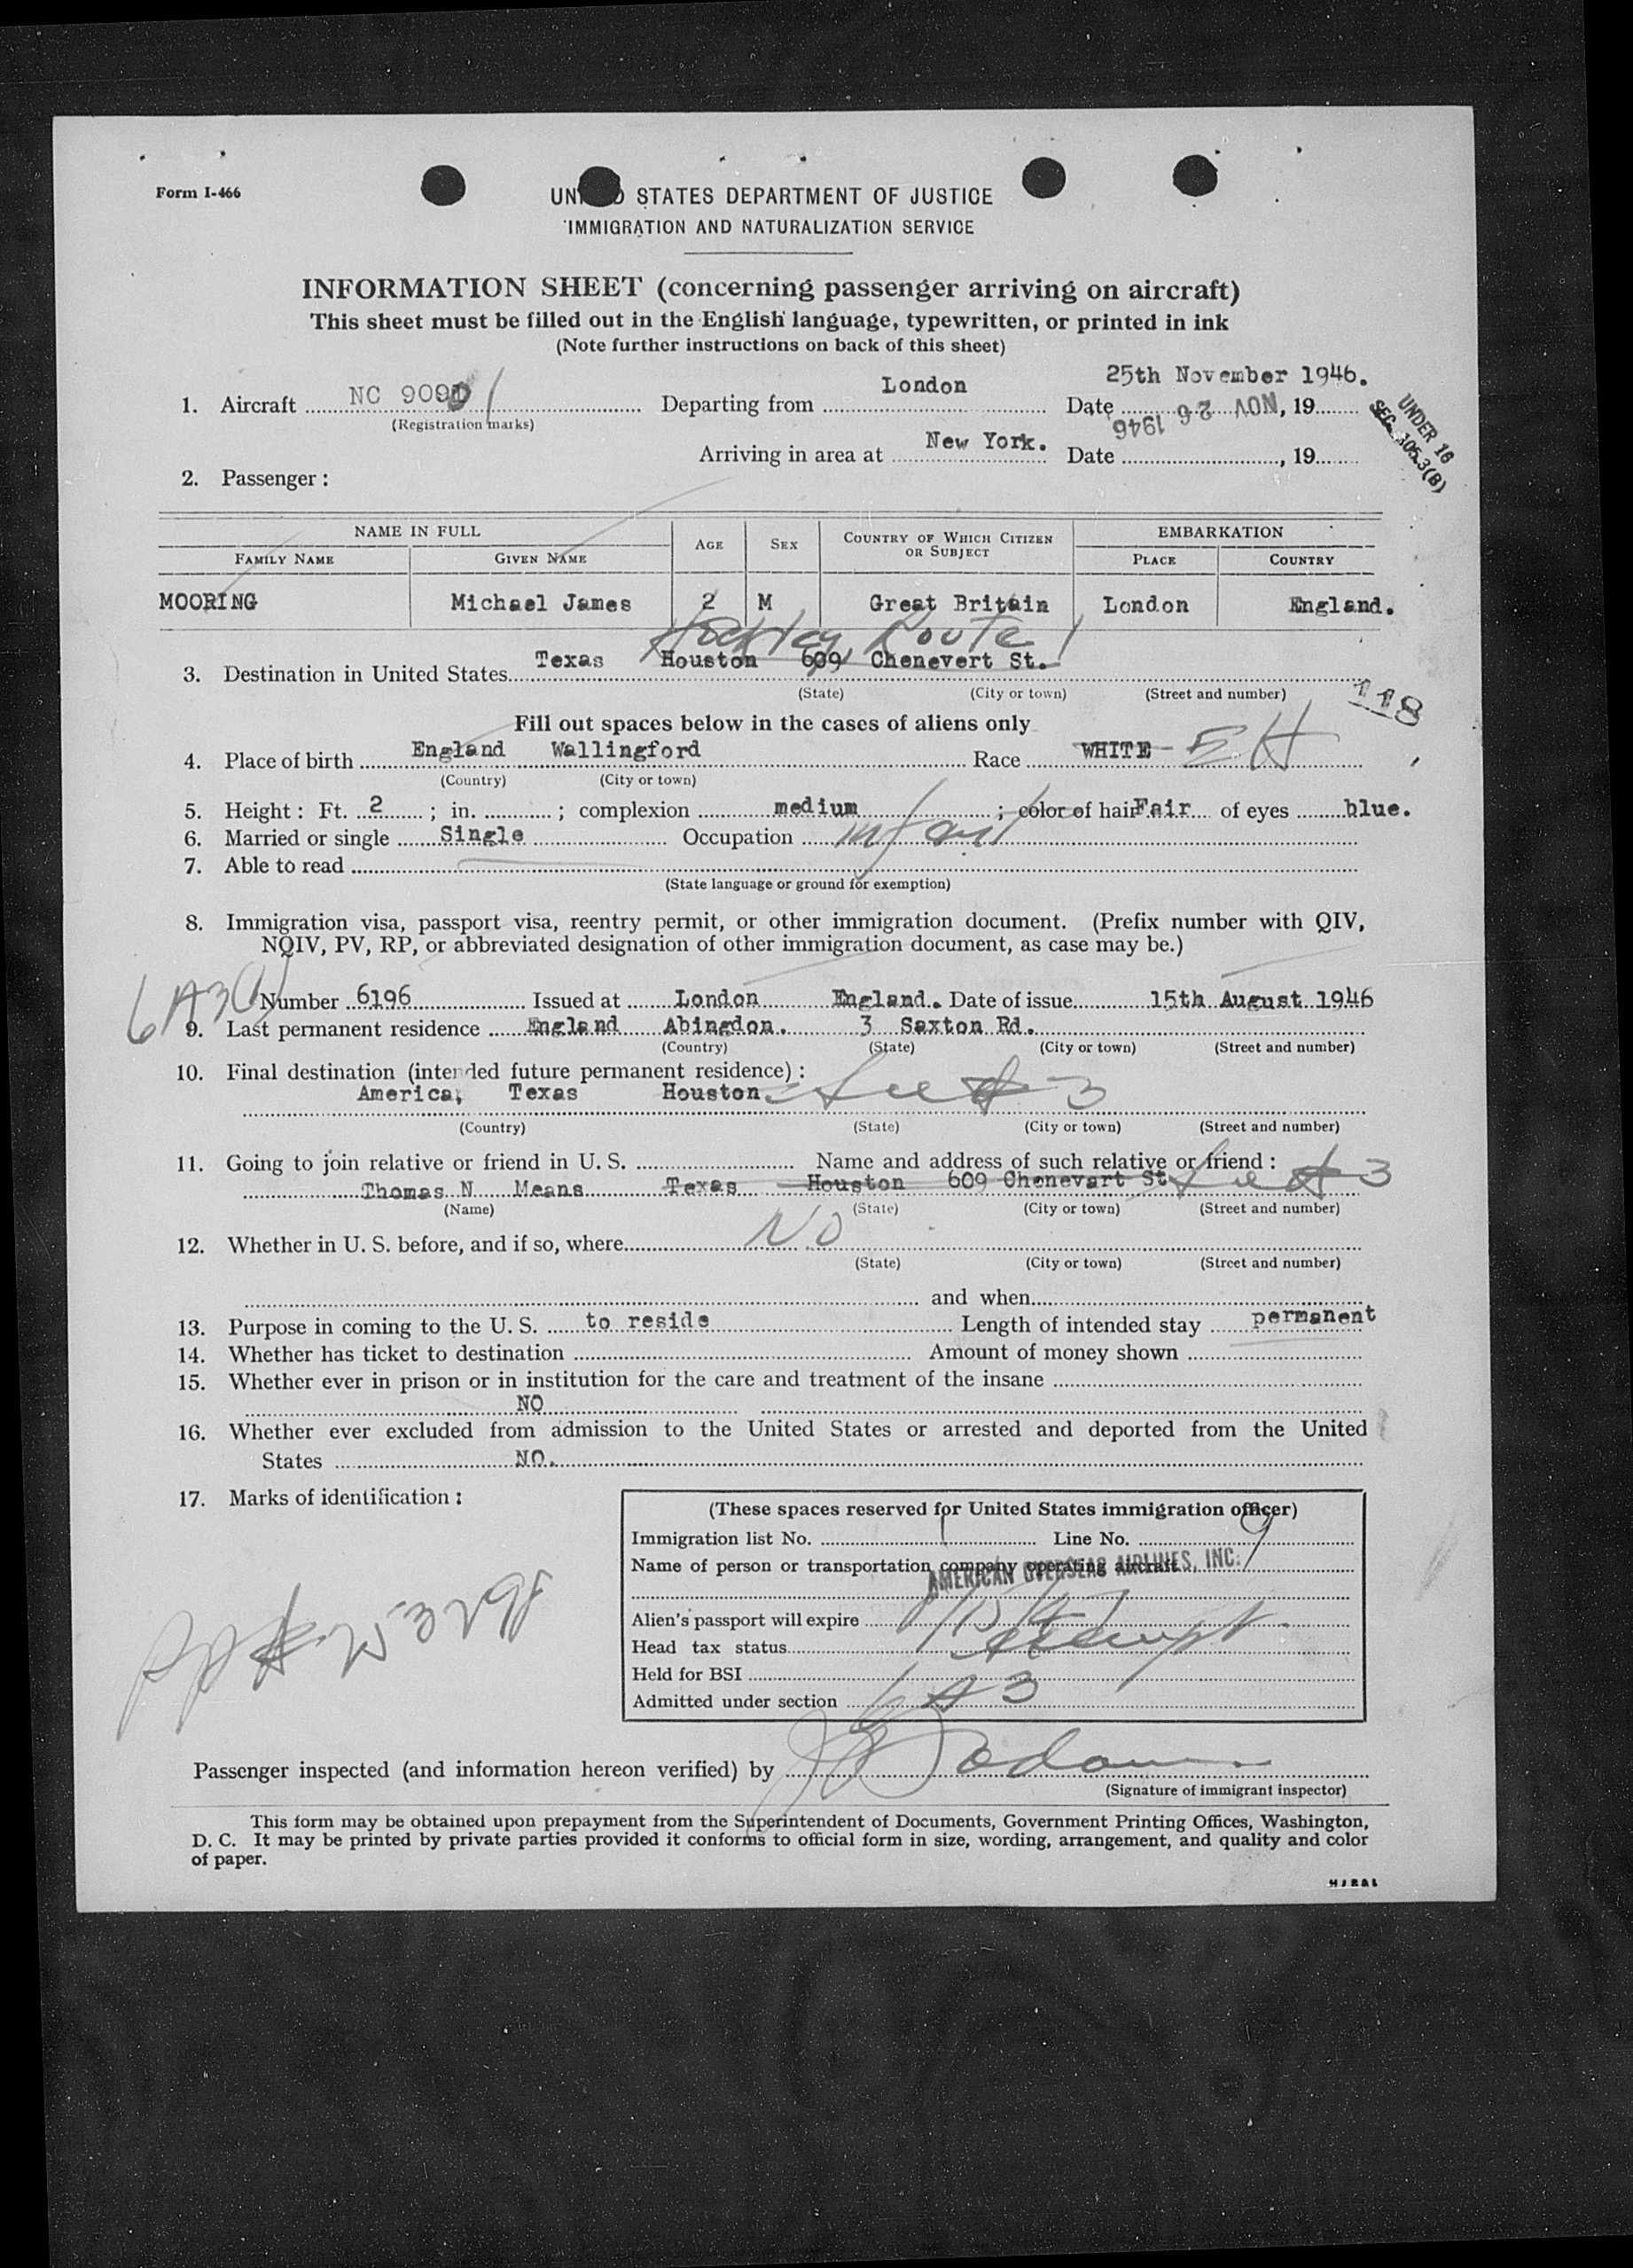 Form I-466
UNITED STATES DEPARTMENT OF JUSTICE
IMMIGRATION AND NATURALIZATION SERVICE
INFORMATION SHEET (concerning passenger arriving on aircraft)
This sheet must be filled out in the English language, typewritten, or printed in ink
(Note further instructions on back of this sheet)
1. Aircraft NC 9090 Departing from London Date 25th November 1946. , 19
NOV 26 1946
(Registration marks)
UNDER 16
SEC. 105.3(B)
Arriving in area at New York. Date , 19
2. Passenger :
NAME IN FULL AGE SEX COUNTRY OF WHICH CITIZEN OR SUBJECT EMBARKATION
FAMILY NAME GIVEN NAME PLACE COUNTRY
MOORING Michael James 2 M Great Britain London England.
Hockley, Route 1
3. Destination in United States Texas Houston 609 Chenevert St.
(State) (City or town) (Street and number)
118
Fill out spaces below in the cases of aliens only
4. Place of birth England Wallingford Race WHITE EH
(Country) (City or town)
5. Height : Ft. 2 ; in. ; complexion medium ; color of hair Fair of eyes blue.
6. Married or single Single Occupation infant
7. Able to read
(State language or ground for exemption)
8. Immigration visa, passport visa, reentry permit, or other immigration document. (Prefix number with QIV,
NQIV, PV, RP, or abbreviated designation of other immigration document, as case may be.)
6A3
Number 6196 Issued at London England. Date of issue 15th August 1946
9. Last permanent residence England Abingdon. 3 Saxton Rd.
(Country) (State) (City or town) (Street and number)
10. Final destination (intended future permanent residence) :
America, Texas Houston. See # 3
(Country) (State) (City or town) (Street and number)
11. Going to join relative or friend in U. S. Name and address of such relative or friend :
Thomas N Means Texas Houston 609 Chenevart St See # 3
(Name) (State) (City or town) (Street and number)
12. Whether in U. S. before, and if so, where NO
(State) (City or town) (Street and number)
and when
13. Purpose in coming to the U. S. to reside Length of intended stay permanent
14. Whether has ticket to destination Amount of money shown
15. Whether ever in prison or in institution for the care and treatment of the insane
NO
16. Whether ever excluded from admission to the United States or arrested and deported from the United
States NO.
17. Marks of identification :
(These spaces reserved for United States immigration officer)
Immigration list No. 1 Line No. 9
Name of person or transportation company operating aircraft
AMERICAN OVERSEAS AIRLINES, INC.
Alien's passport will expire
Head tax status exempt
Held for BSI
Admitted under section 6A3
Passenger inspected (and information hereon verified) by
(Signature of immigrant inspector)
This form may be obtained upon prepayment from the Superintendent of Documents, Government Printing Offices, Washington,
D. C. It may be printed by private parties provided it conforms to official form in size, wording, arrangement, and quality and color
of paper.